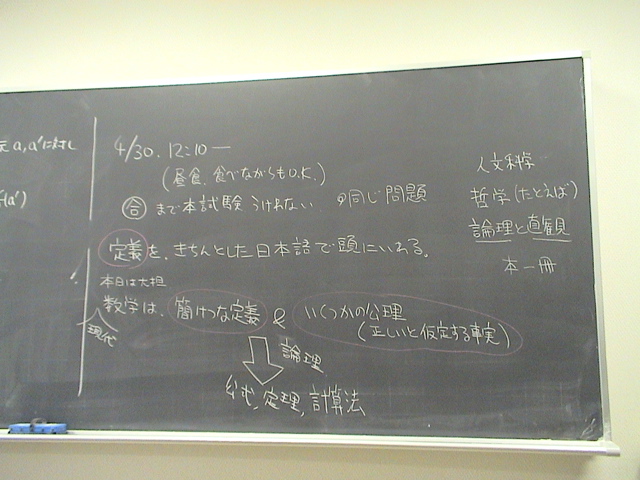 元 a, a'に対し
(a')
4/30. 12:10ー
(昼食、食べながらもO.K.)
合 まで本試験 うけれない
同じ問題
定義を、きちんとした日本語で頭にいれる。
本日は大担
数学は、簡けつな定義 & いくつかの公理
現代
(正しいと仮定する事実)
論理
公式, 定理, 計算法
人文科学
哲学(たとえば)
論理と直観
本一冊